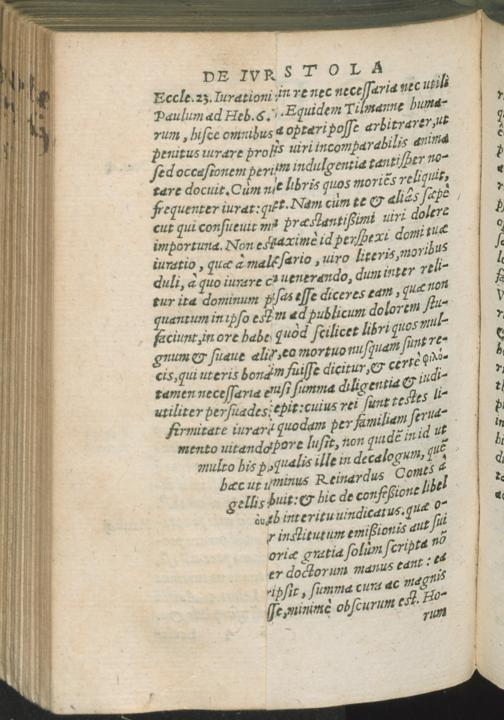 DE IVR S T O L A
Eccle. 23. Iurationi in re nec necessaria nec utili
Paulum ad Heb. 6. Equidem Tilmanne huma-
rum, hisce omnibus a optari posse arbitrarer, ut
penitus iurare pro is uiri incomparabilis anima
sed occasionem peri m indulgentia tantisper no-
tare docuit. Cùm n e libris quos moriēs reliquit,
frequenter iurat: qu t. Nam cùm te & aliâs sæpè
cut qui consueuit m præstantißimi uiri dolere
importuna. Non est aximè id perspexi domi tuæ
iuratio, quæ à mal sario, uiro literis, moribus
duli, a quo iurare c uenerando, dum inter reli-
tur ita dominum p sas esse diceres eam, quæ non
quantum in ipso est m ad publicum dolorem stu-
faciunt, in ore habe quòd scilicet libri quos mul-
gnum & suaue ali r, eo mortuo nusquam sunt re-
cis, qui uteris bonā m fuisse dicitur, & certè φιλο-
tamen necessaria e nisi summa diligentia & iudi-
utiliter persuades: epit: cuius rei sunt testes li-
firmitate iurare quodam per familiam serua-
mento uitando pore lusit, non quidē in id ut
multo his p qualis ille in decalogum, quē
hæc ut u minus Reinardus Comes à
gellis buit: & hic de confeßione libel
ab interitu uindicatus. quæ o-
r institutum emißionis aut sui
oriæ gratia solùm scripta nō
er doctorum manus eant: ea
ripsit, summa cura ac magnis
sse, minimè obscurum est. Ho-
rum